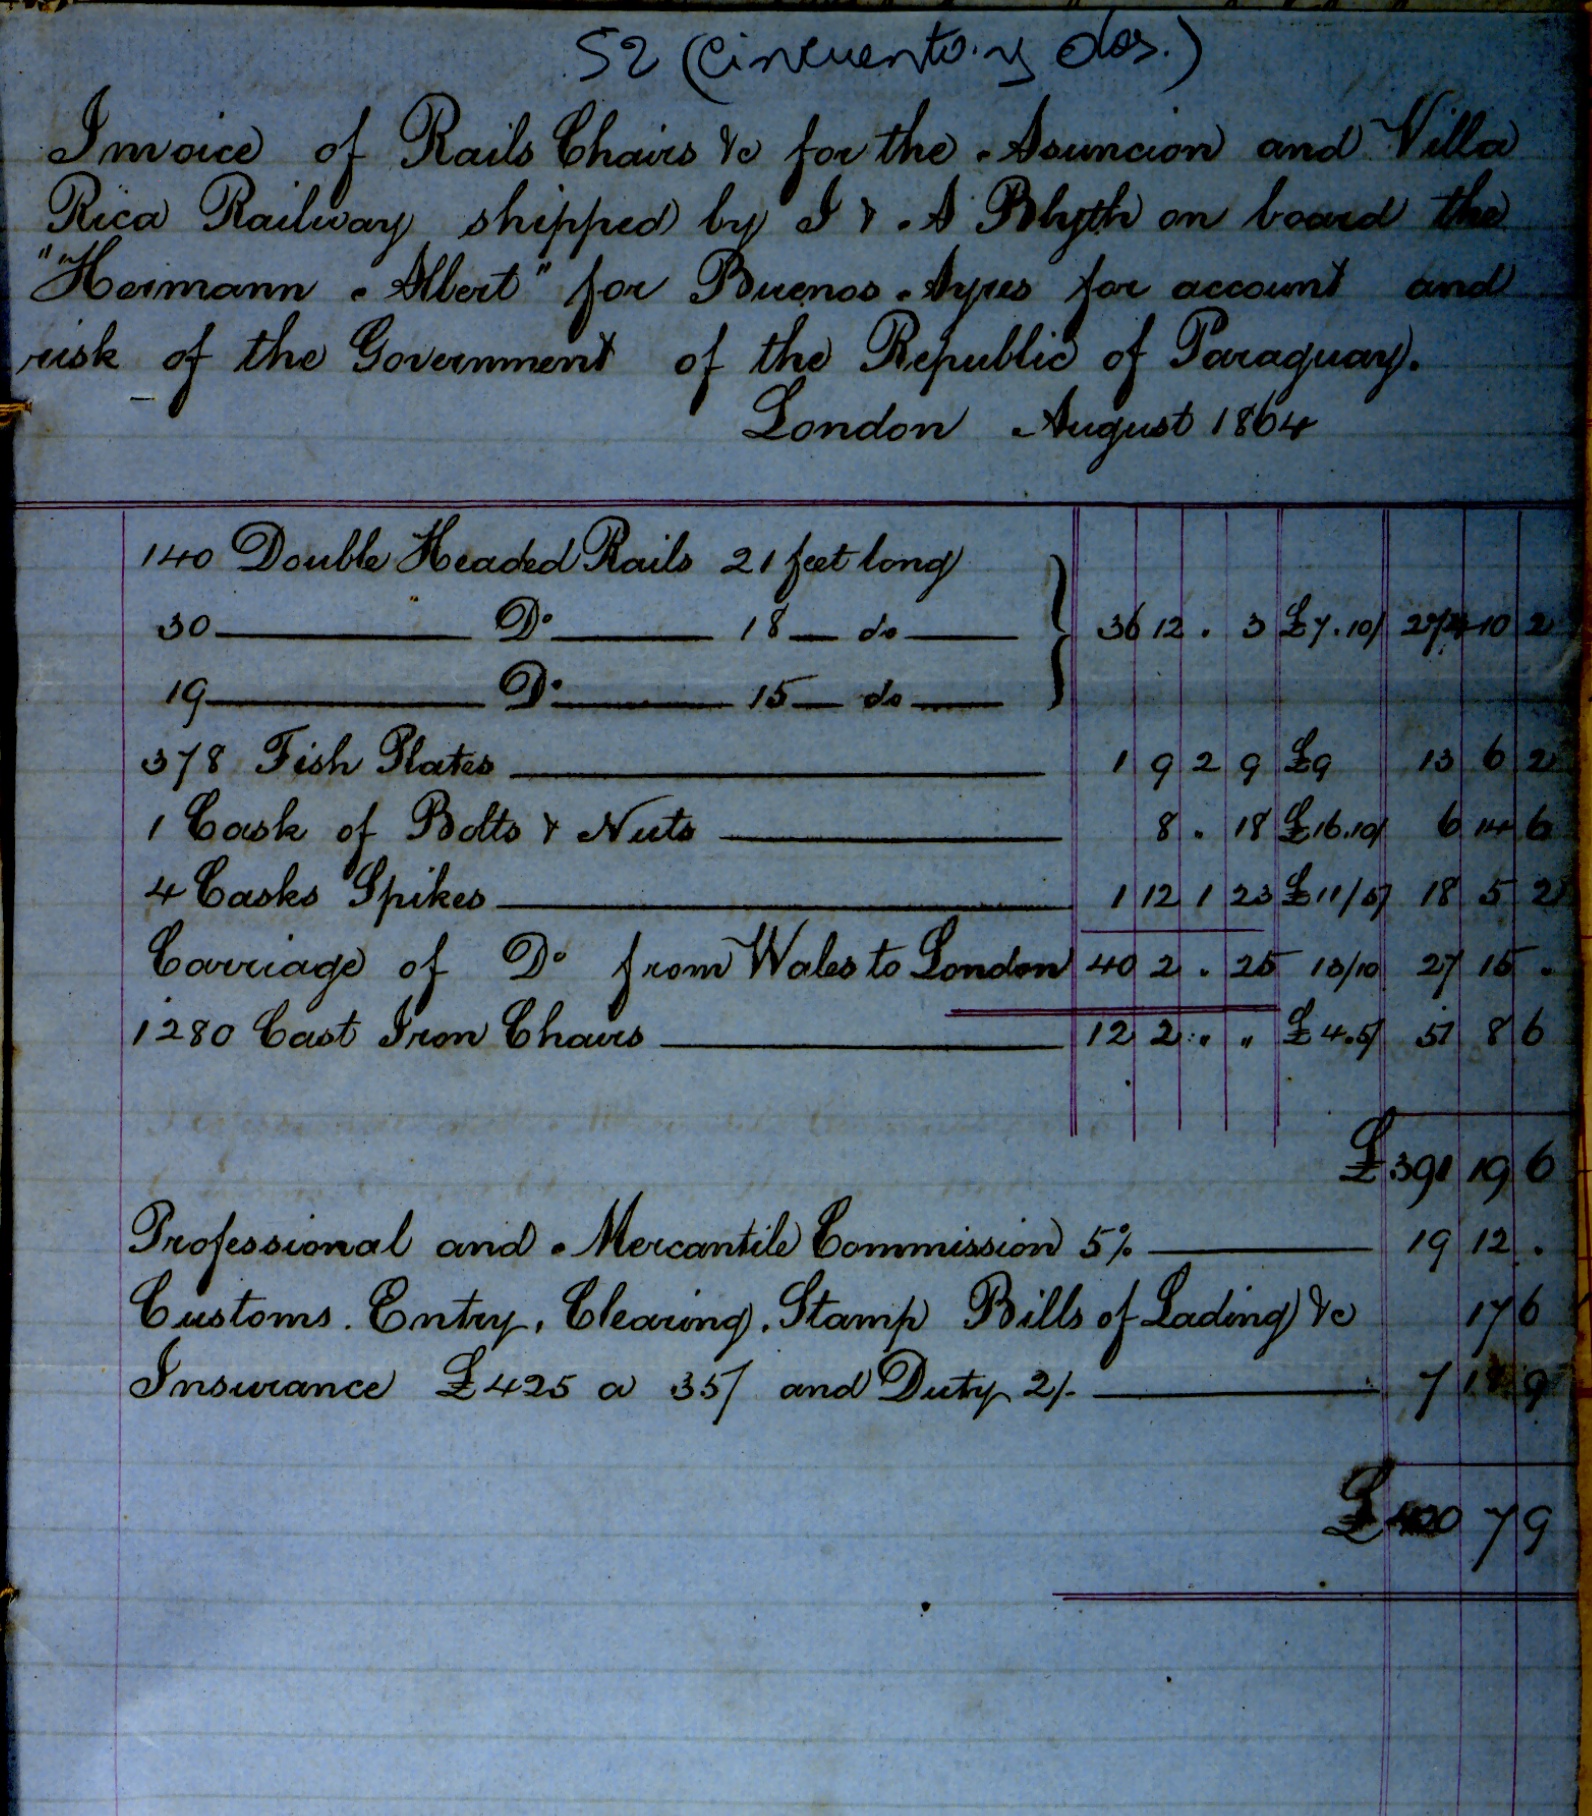 52 (cincuenta y dos.)
Invoice of Rails Chairs &c for the Asuncion and Villa
Rica Railway shipped by J & A Blyth on board the
"Hermann Albert" for Buenos Ayres for account and
risk of the Government of the Republic of Paraguay.
London August 1864
140 Double Headed Rails 21 feet long
30 — Do — 18 — do — 36 12 . 3 £7.10/ 274 10 2
19 — Do — 15 — do —
378 Fish Plates — 1 9 2 9 £9 13 6 2
1 Cask of Bolts & Nuts — 8 . 18 £16.10/ 6 14 6
4 Casks Spikes — 1 12 1 23 £11/5/ 18 5 2
Carriage of Do from Wales to London 40 2 . 25 13/10 27 15 .
1280 Cast Iron Chairs — 12 2 . „ £4.5/ 51 8 6
£391 19 6
Professional and Mercantile Commission 5% — 19 12 .
Customs. Entry, Clearing, Stamp Bills of Lading &c 17 6
Insurance £425 a 35/ and Duty 2/- — 7 18 9
£420 7 9